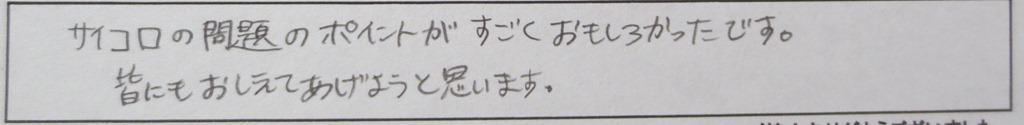 サイコロの問題のポイントがすごくおもしろかったです。
皆にもおしえてあげようと思います。